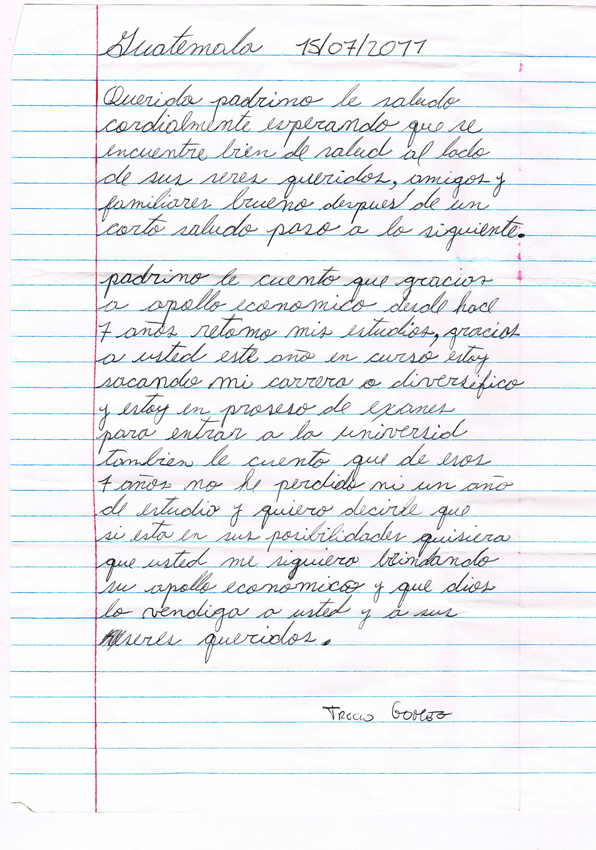 Guatemala 15/07/2011
Querida padrino le saludo
cordialmente esperando que se
encuentre bien de salud al lado
de sus seres queridos, amigos y
familiares brueno despues de un
corto saludo paso a lo siguiente.
padrino le cuento que gracias
a apollo economico desde hace
7 años retomo mis estudios, gracias
a usted este año en curso estoy
sacando mi carrera o diversifico
y estoy en proseso de exanes
para entrar a la universid
tambien le cuento que de esos
7 años no he perdido ni un año
de estudio y quiero decirle que
si esta en sus posibilidades quisiera
que usted me siguiera brindando
su apollo economico y que dios
lo vendiga a usted y a sus
seres queridos.